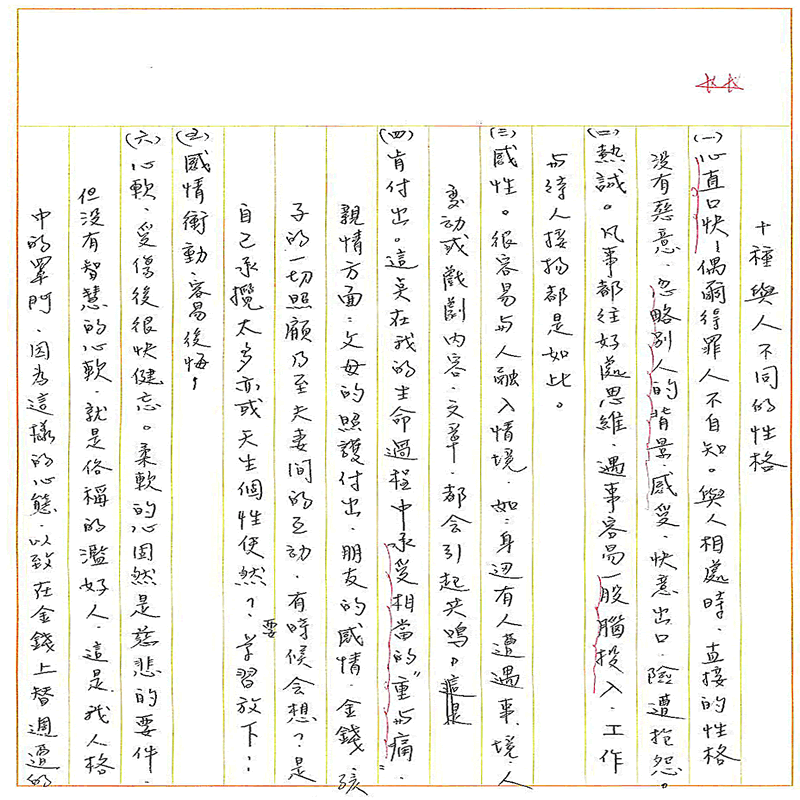 十種與人不同的性格
(一)心直口快!偶爾得罪人不自知。與人相處時、直接的性格
没有惡意、忽略别人的背景、感受、快意出口、險遭抱怨。
(二)熱誠。凡事都往好處思維、遇事容易一股腦投入、工作
与待人接物都是如此。
(三)感性。很容易与人融入情境、如:身边有人遭遇事、境、人
変动或戲劇内容、文章、都会引起共鳴,
(四)肯付出。這矣在我的生命過程中承受相當的"重与痛"、
親情方面:父母的照護付出、朋友的感情、金錢、孩
子的一切照顧乃至夫妻间的互动、有時候会想?是
自己承攬太多亦或天生個性使然?、要学習放下…
(五)感情衝動、容易後悔!
(六)心軟、受傷後很快健忘。柔軟的心固然是慈悲的要件、
但没有智慧的心軟、就是俗稱的濫好人、這是我人格
中的罩門、因為這樣的心態、以致在金錢上替週遭的